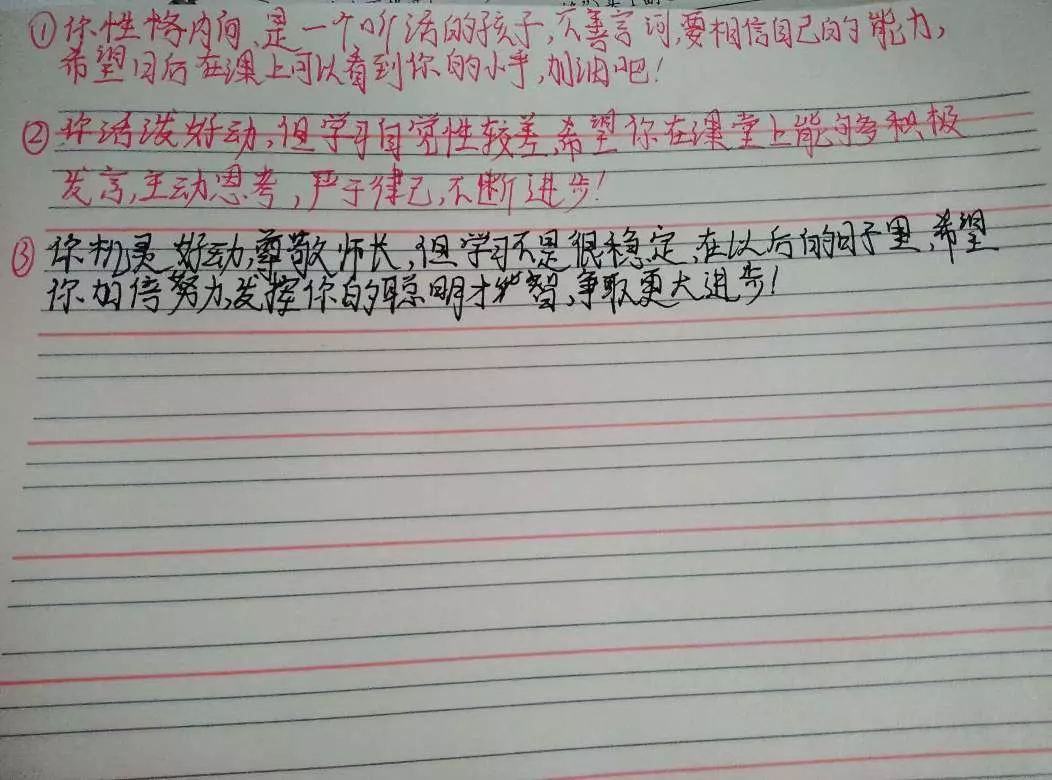 ①你性格内向,是一个听话的孩子,不善言词,要相信自己的能力,
希望日后在课上可以看到你的小手,加油吧!
②你活泼好动,但学习自觉性较差,希望你在课堂上能够多积极
发言,主动思考,严于律己,不断进步!
③你机灵好动,尊敬师长,但学习不是很稳定,在以后的日子里,希望
你加倍努力,发挥你的聪明才智,争取更大进步!